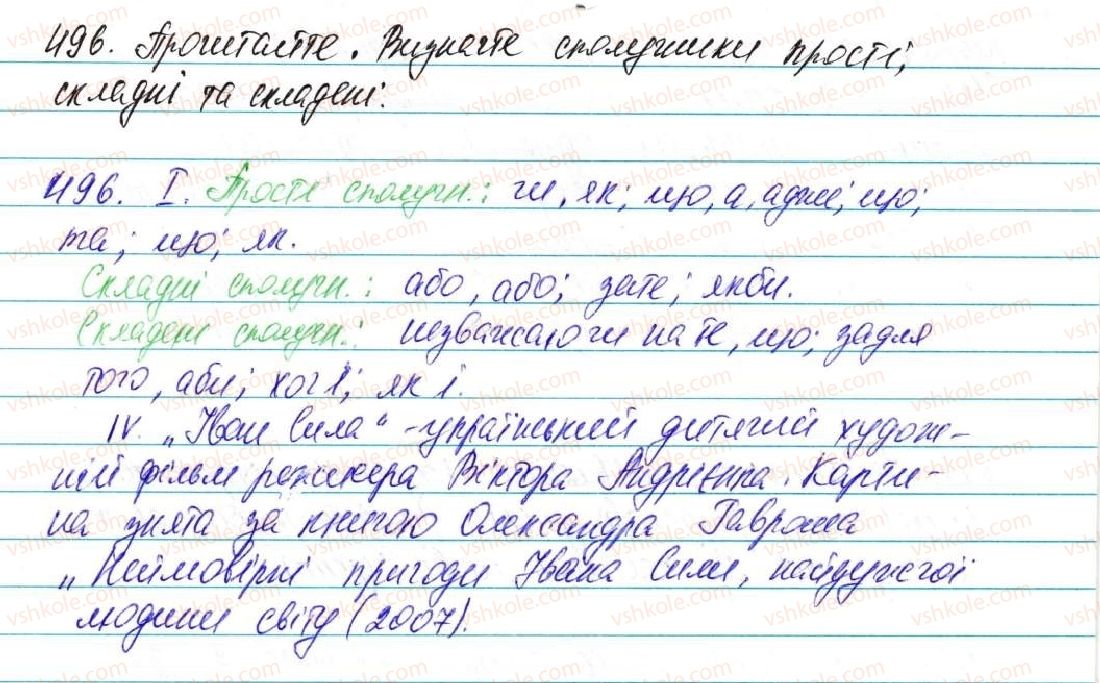 496. Прочитайте. Визначте сполучники прості,
складні та складені.
496. І. Прості сполучн.: чи, як; що, а, адже; що;
та; що; як.
Складні сполучн.: або, або; зате; якби.
Складені сполучн.: незважаючи на те, що; задля
того, аби; хоч і; як і.
IV. „Іван Сила" - український дитячий худож-
ній фільм режисера Віктора Андрієнка. Карти-
на знята за книгою Олександра Гавроша
„Неймовірні пригоди Івана Сили, найдужчої
людини світу (2007).